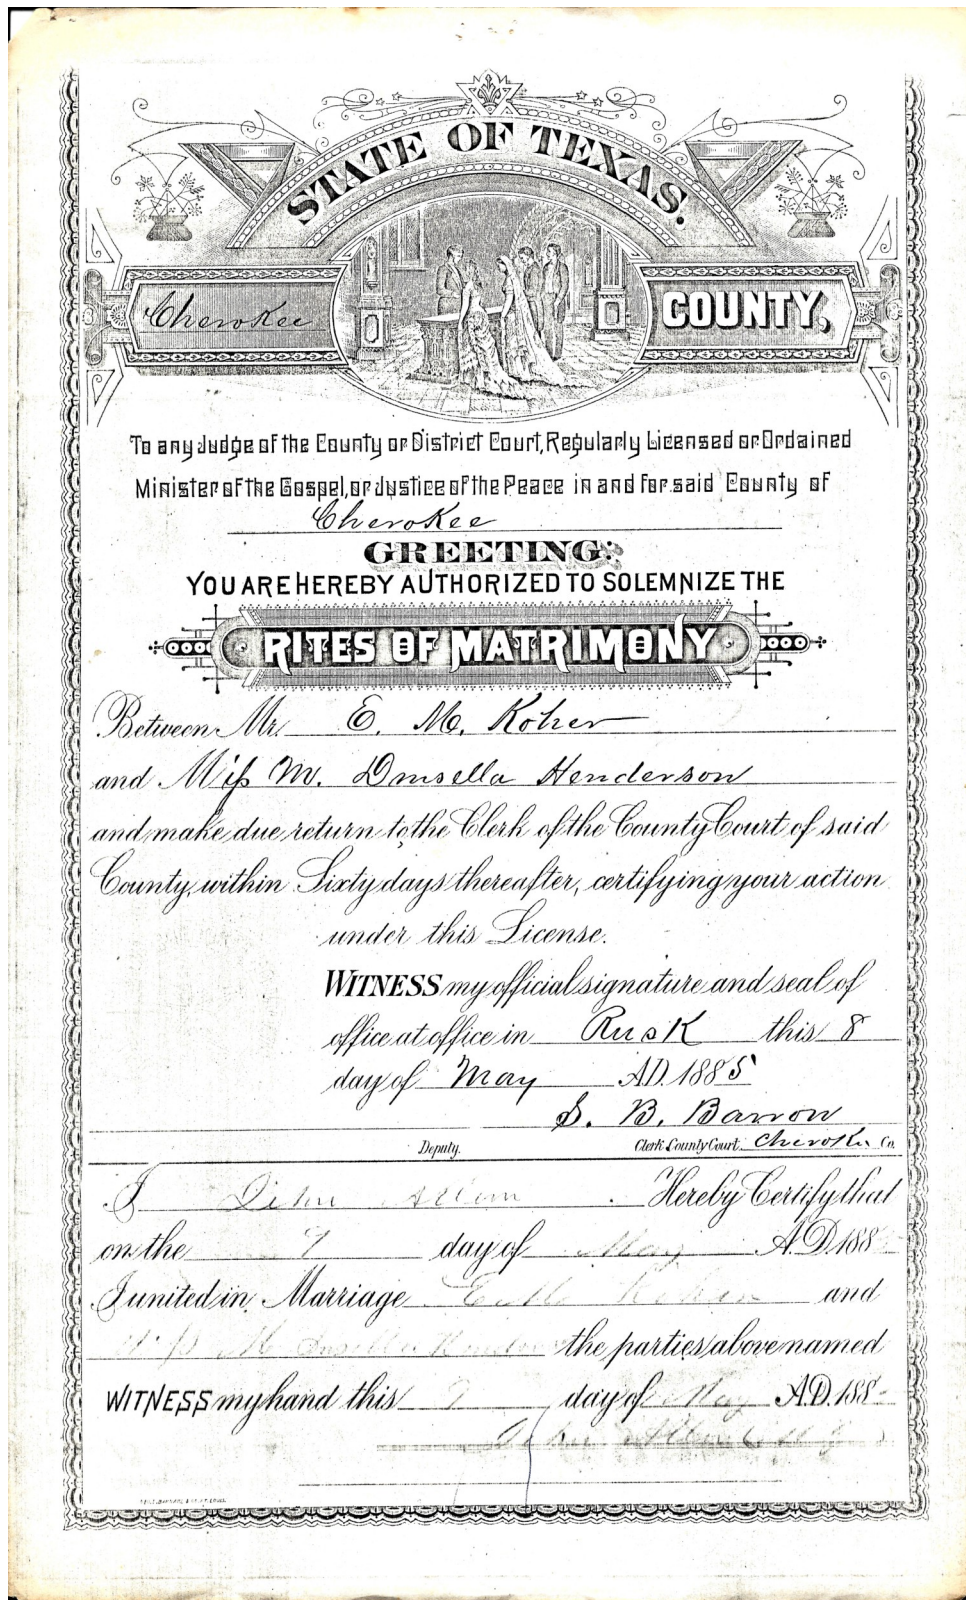 STATE OF TEXAS.
Cherokee COUNTY,
To any Judge of the County or District Court, Regularly Licensed or Ordained
Minister of the Gospel, or Justice of the Peace in and for said County of
Cherokee
GREETING:
YOU ARE HEREBY AUTHORIZED TO SOLEMNIZE THE
RITES OF MATRIMONY
Between Mr. E. M. Koher
and Miss M. Drusella Henderson
and make due return to the Clerk of the County Court of said
County, within Sixty days thereafter, certifying your action
under this License.
WITNESS my official signature and seal of
office at office in Rusk this 8
day of May A.D. 1885
S. B. Barron
Deputy. Clerk County Court Cherokee Co.
I John Allen Hereby Certify that
on the day of May A.D. 188
I united in Marriage and
Miss M Drusella the parties above named
WITNESS my hand this day of May A.D. 188
John Allen